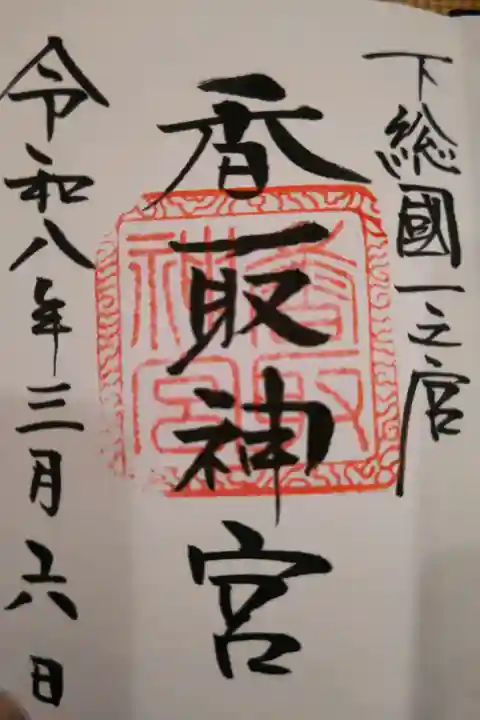 下総國一之宮
香取神宮
香取神宮
令和八年三月二六日